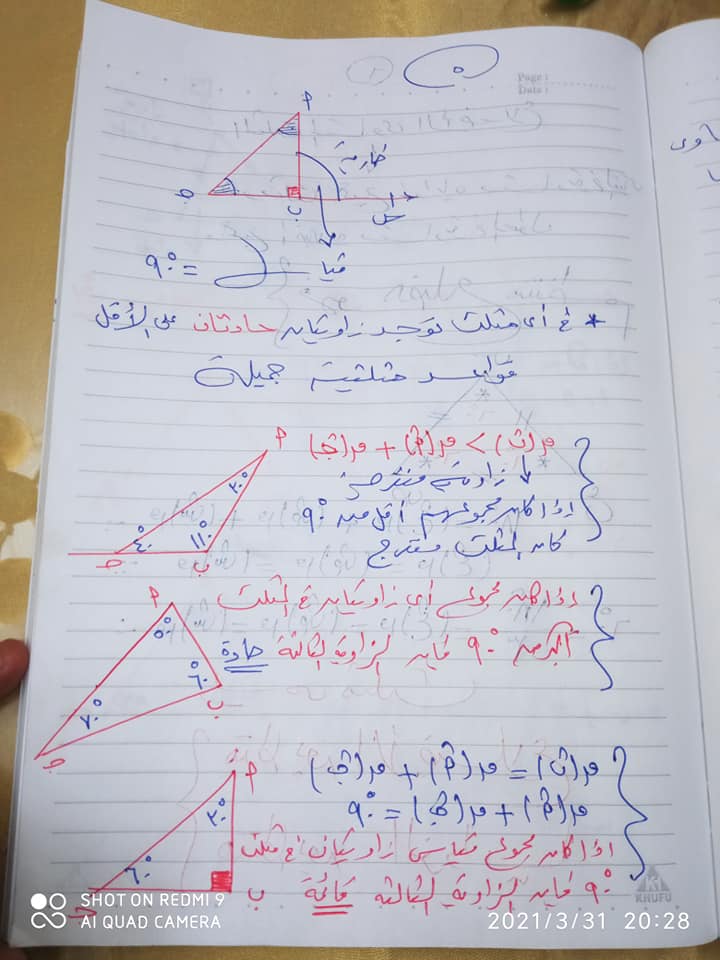 Page:
Date:
٥
أ
خارجة
جـ
ب
قياس = ٩٠°
* في أي مثلث توجد زاويتان حادتان على الأقل
قواعد مثلثية جميلة
ق(ب) > ق(أ) + ق(جـ)
زاوية منفرجة
إذا كان مجموعهم أقل من ٩٠°
كان المثلث منفرج
أ
٣٠°
٤٠°
١١٠°
جـ
ب
إذا كان مجموع أي زاويتان في المثلث
أكبر من ٩٠° فإن الزاوية الثالثة حادة
أ
٥٠°
٦٠°
ب
٧٠°
جـ
ق(ب) = ق(أ) + ق(جـ)
ق(أ) + ق(جـ) = ٩٠°
إذا كان مجموع قياس زاويتان في مثلث
٩٠° فإن الزاوية الثالثة قائمة
أ
٣٠°
٦٠°
جـ
ب
KHUFU
SHOT ON REDMI 9
AI QUAD CAMERA
2021/3/31 20:28